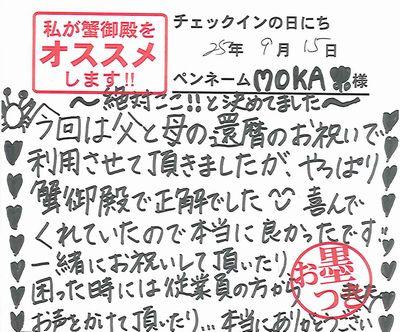 私が蟹御殿を
オススメ
します!!
チェックインの日にち
25年 9月 15日
ペンネーム MOKA 様
〜絶対ここ!!と決めてました〜
今回は父と母の還暦のお祝いで
利用させて頂きましたが、やっぱり
蟹御殿で正解でした 喜んで
くれていたので本当に良かったです
一緒にお祝いして頂いたり
困った時には従業員の方から
お声をかけて頂いたり…本当にありがとうござい
お墨つき